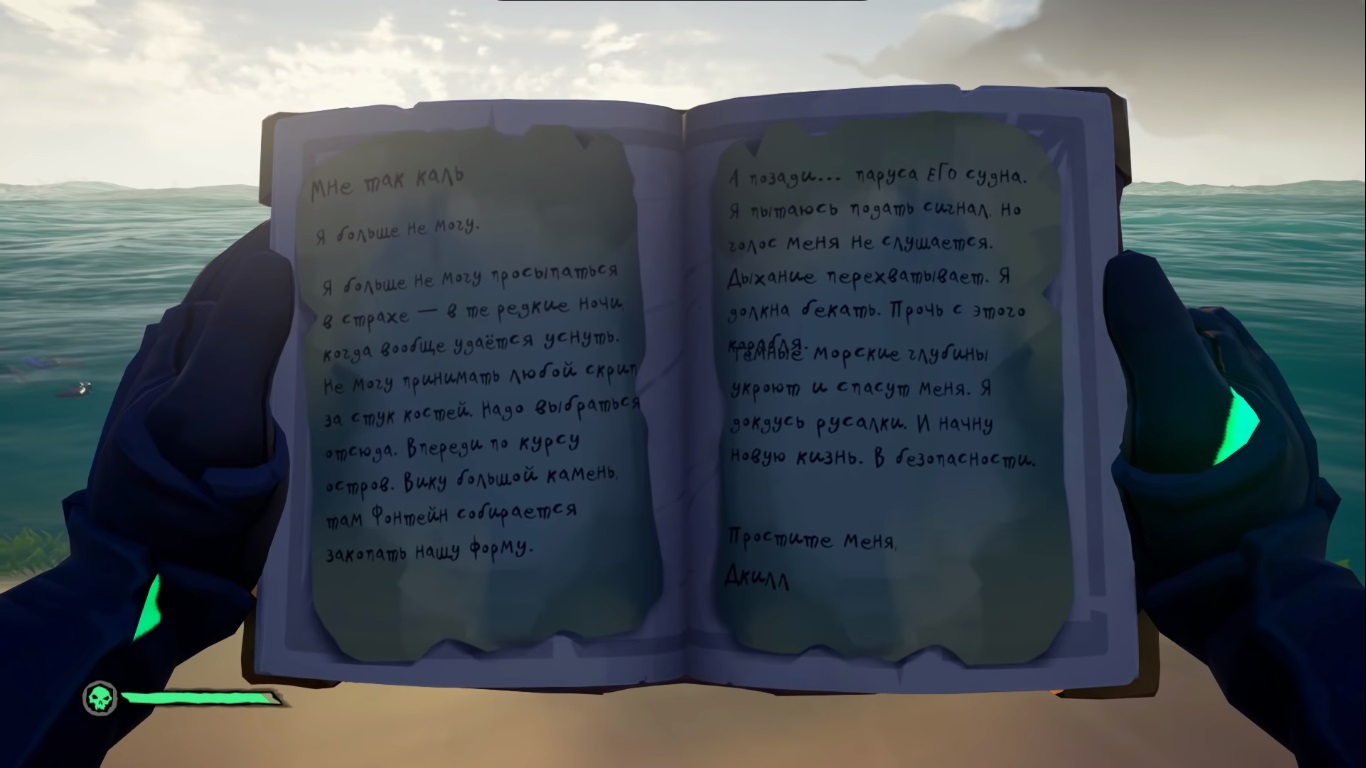 Мне так каль
Я больше не могу.
Я больше не могу просыпаться
в страхе — в те редкие ночи,
когда вообще удаётся уснуть.
Не могу принимать любой скрип
за стук костей. Надо выбраться
отсюда. Впереди по курсу
остров. Вику большой камень,
там Фонтейн собирается
закопать нашу форму.
А позади... паруса ЕГО судна.
Я пытаюсь подать сигнал, но
голос меня не слушается.
Дыхание перехватывает. Я
долкна бекать. Прочь с этого
карабля.
Тёмные морские глубины
укроют и спасут меня. Я
докдусь русалки. И начну
новую кизнь. В безопасности.
Простите меня,
Дкилл